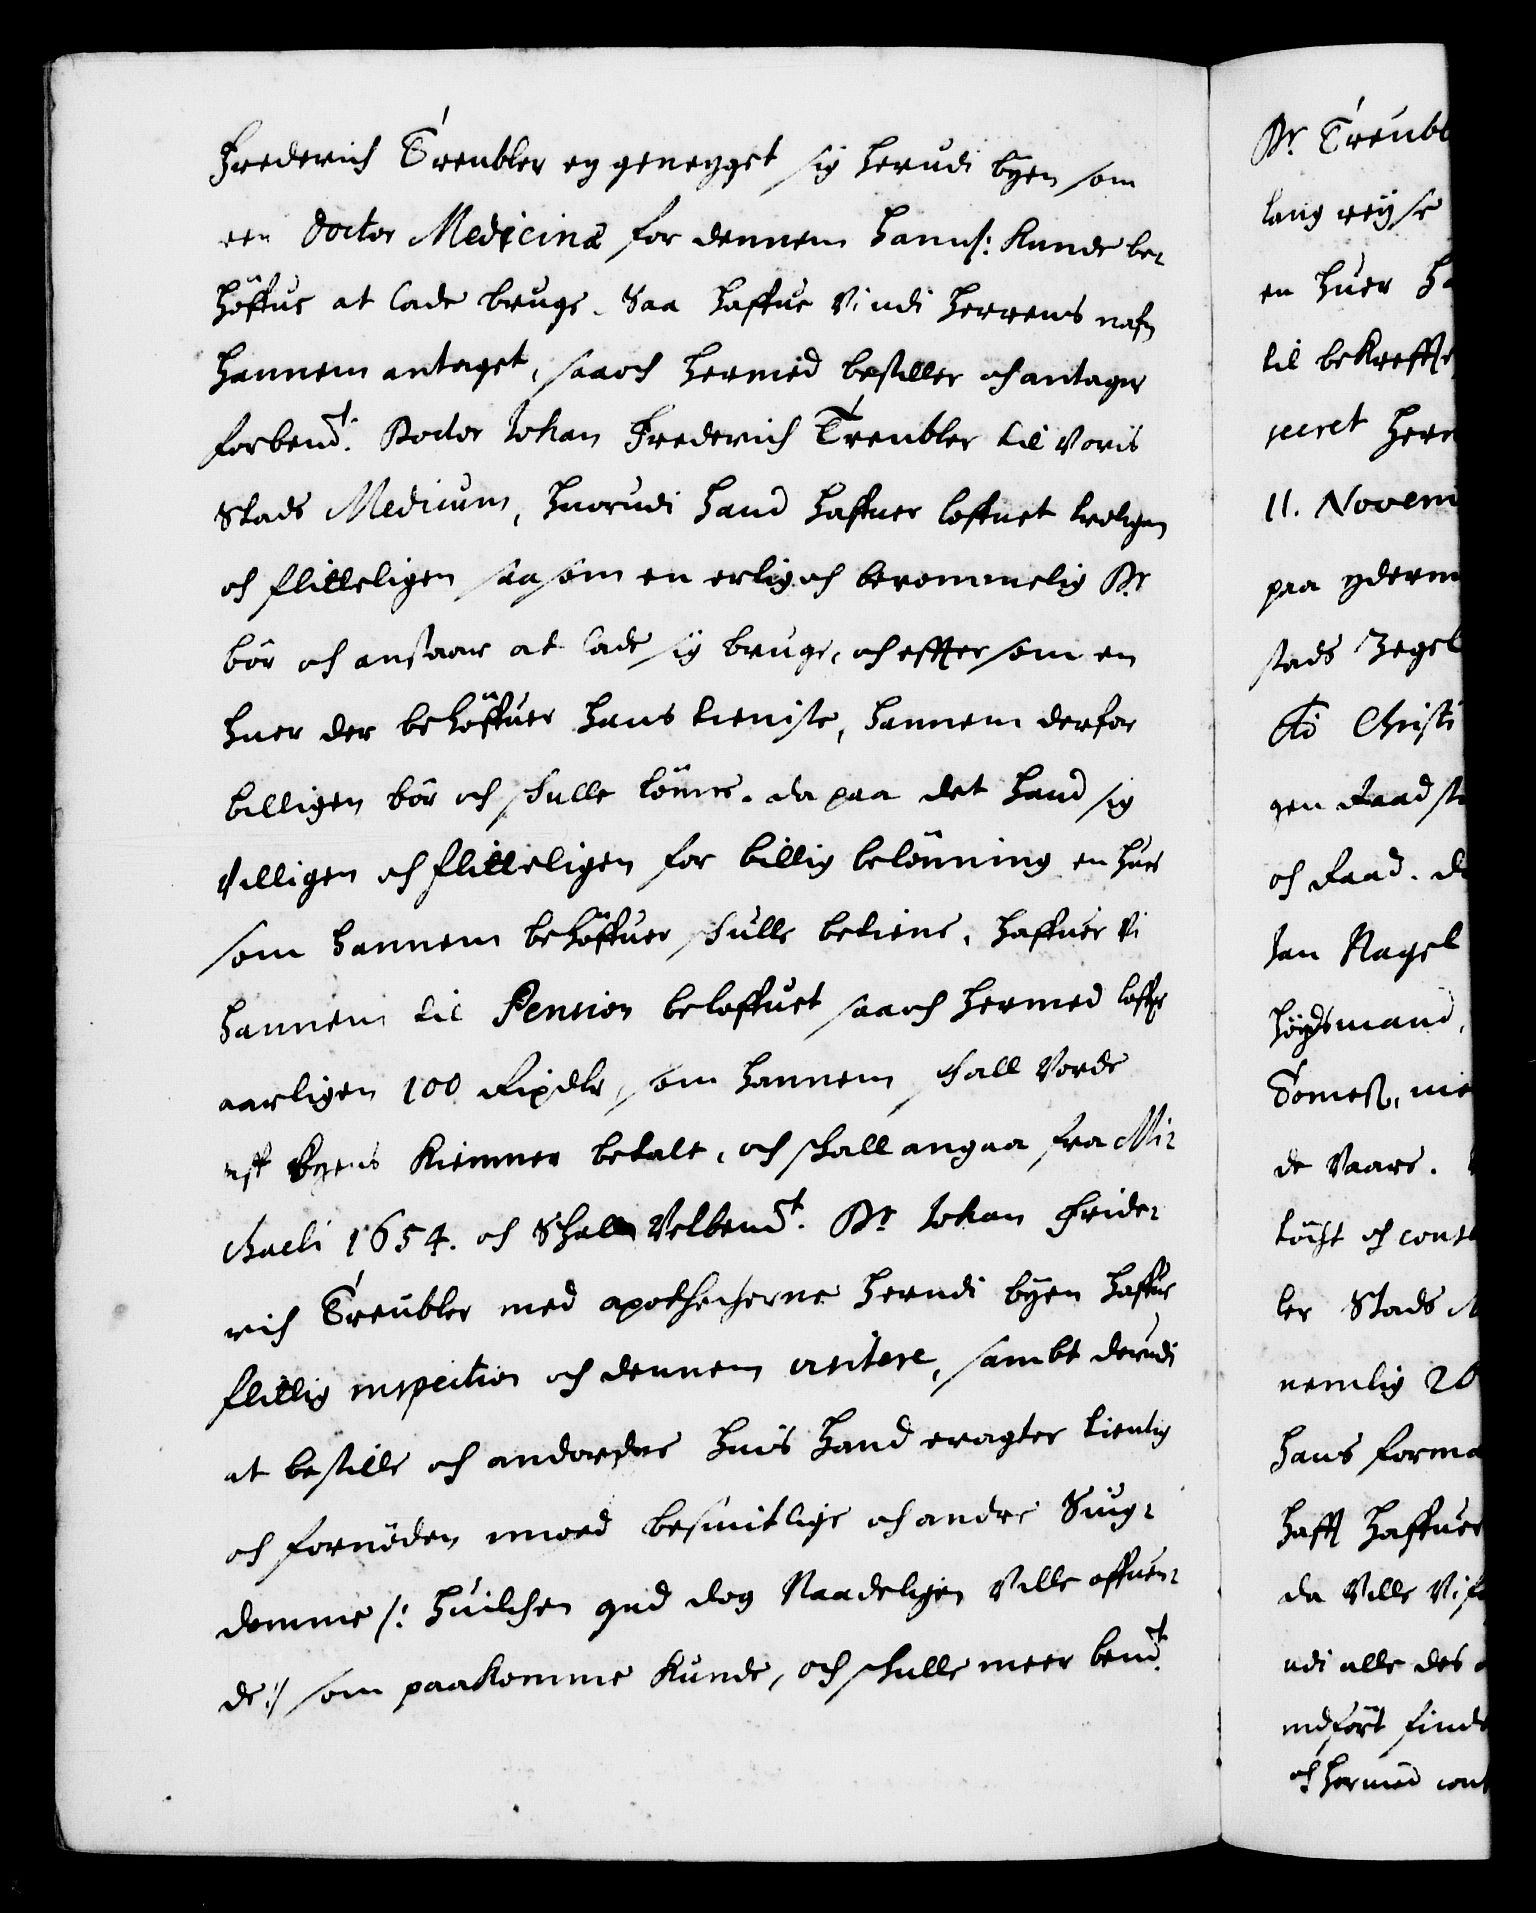 Frederich Treubler eg genegget sig herudi byen som
een Doctor Medicinæ for dennem hannß: kunde be-
höffue at lade bruge. Saa haffue Vi udi Herrens nafn
hannem antaget, saa och hermed bestiller och antager
forbend.t Doctor Johan Frederich Treubler til voris
Stads Medicum, huorudi hand haffuer loffuet troligen
och flitteligen saa som en erlig och berommelig Dr
bör och anstaar at lade sig bruge, och effter som en
huer der behöffuer hans tieniste, hannem derfor
billigen bör och skulle lönne. da paa det hand sig
Villigen och flitteligen for billig belönning en huer
som hannem behöffuer skulle betiene, haffuer Vi
hannem til Pension beloffuet saa och hermed loffuer
aarligen 100 Rixdlr, som hannem skall Vorde
aff byens Kiemner betalt, och skall angaa fra Mi-
chaeli 1654. och Skall Velbend.t Dr Johan Fride-
rich Treubler med apothecherne herudi byen haffue
flittig inspection och dennem visitere, sambt derudi
at bestille och andordne huis hand eragter tienlig
och fornöden imod besmitlige och andre Siug-
domme /: huilchen gud dog Naadeligen Ville affuen-
de :/ som paakomme kunde, och skulle meer bend.t
Dr Treubl
lang reyse
en huer ha
til bekreffte
secret her
11. Novem
paa yderm
stads Zegel
Ao Christi
gen Raadst
och Raad. D
Jan Nagel
höydsmand,
Tomeß, me
de Vaare.
löst och cont
ler Stads M
nemlig 20
hans forma
hafft haffuer
da Ville Vi
udi alle des
indfört finde
och hermed cont